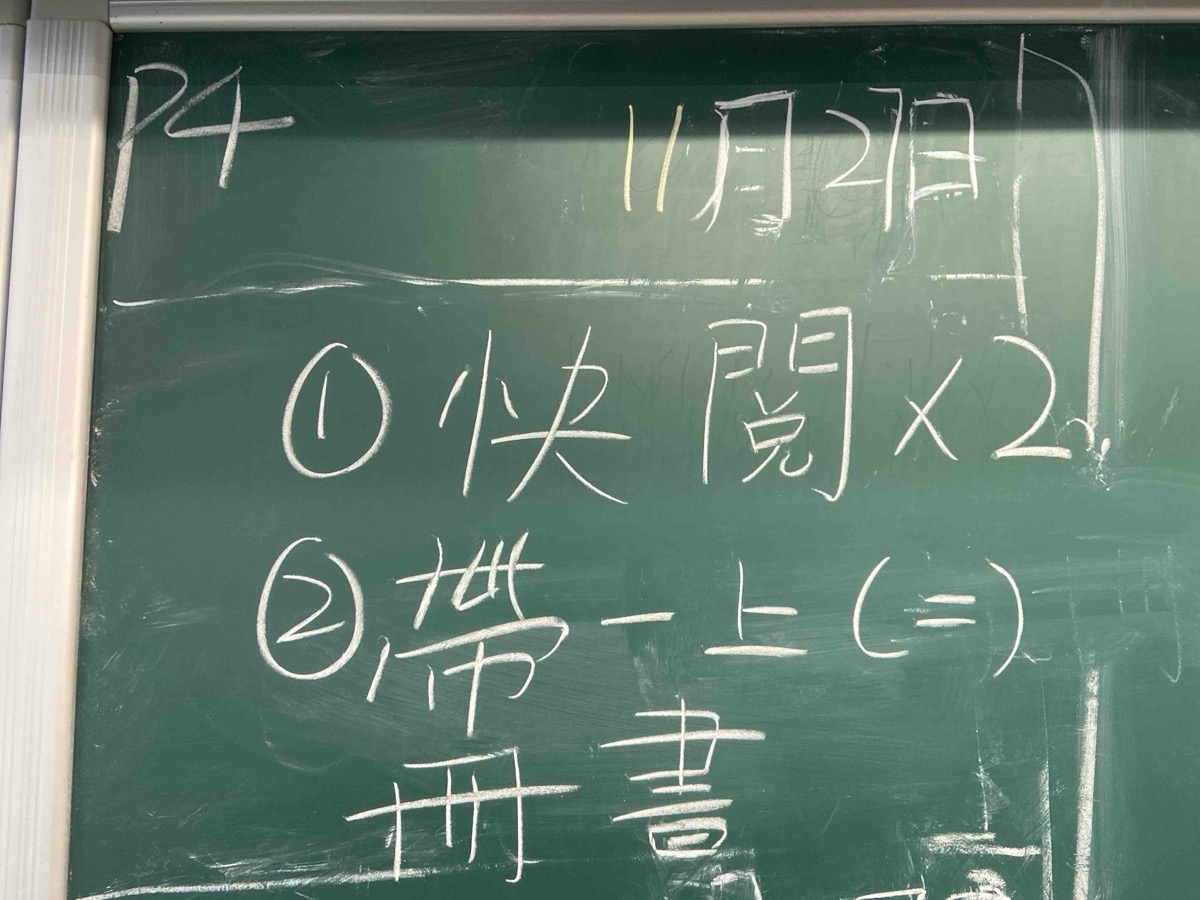 P4 11月27日
①快閱×2
②帶一上(二)
冊書